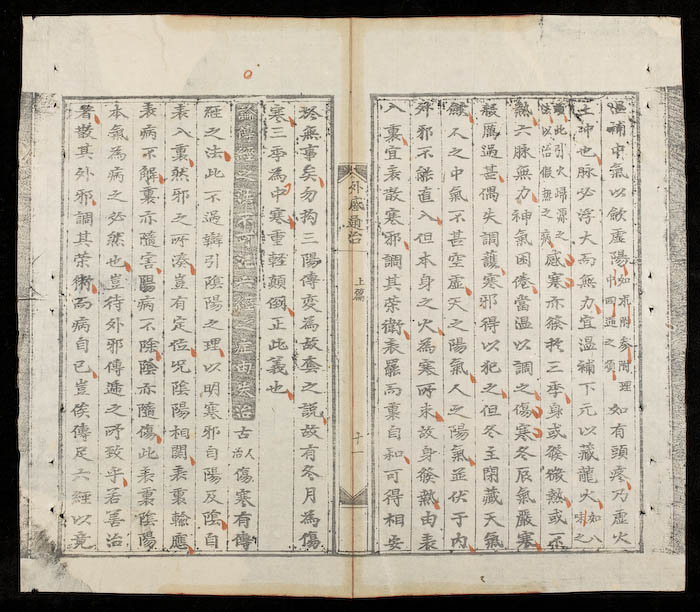 溫補中氣以斂虛陽如朮附參附理中四逆之類如有頭疼乃虛火
上冲也脉必浮大而無力宜溫補下元以藏龍火如八味之
類此引火歸源之法以治假熱之病感寒亦發於三季身或發微熱或不
熱六脉無力神氣困倦當溫以調之傷寒冬辰氣嚴寒
殺厲過甚偶失調護寒邪得以犯之但冬主閉藏天氣
人之中氣不甚空虛天之陽氣人之陽氣並伏于內
外邪不能直入但本身之火為寒所束故身發熱由表
入裏宜表散寒邪調其荣衛表羅而裏自和可得相安
外感通治 上篇 十一
於無事矣勿拘三陽傳変為故套之說故有冬月為傷
寒三季為中寒重輕顛倒正此義也
論傳經之法不可泥六經之症由失治古人治傷寒有傳
經之法此不過辯引陰陽之理以明寒邪自陽及陰自
表入裏然邪之所湊豈有定位况陰陽相関表裏輸應
表病不解裏亦隨害陽病不除陰亦隨傷此表裏陰陽
本氣為病之必然也豈待外邪傳遞之所致乎若善治
者散其外邪調其荣衛而病自已豈俟傳足六經以竟